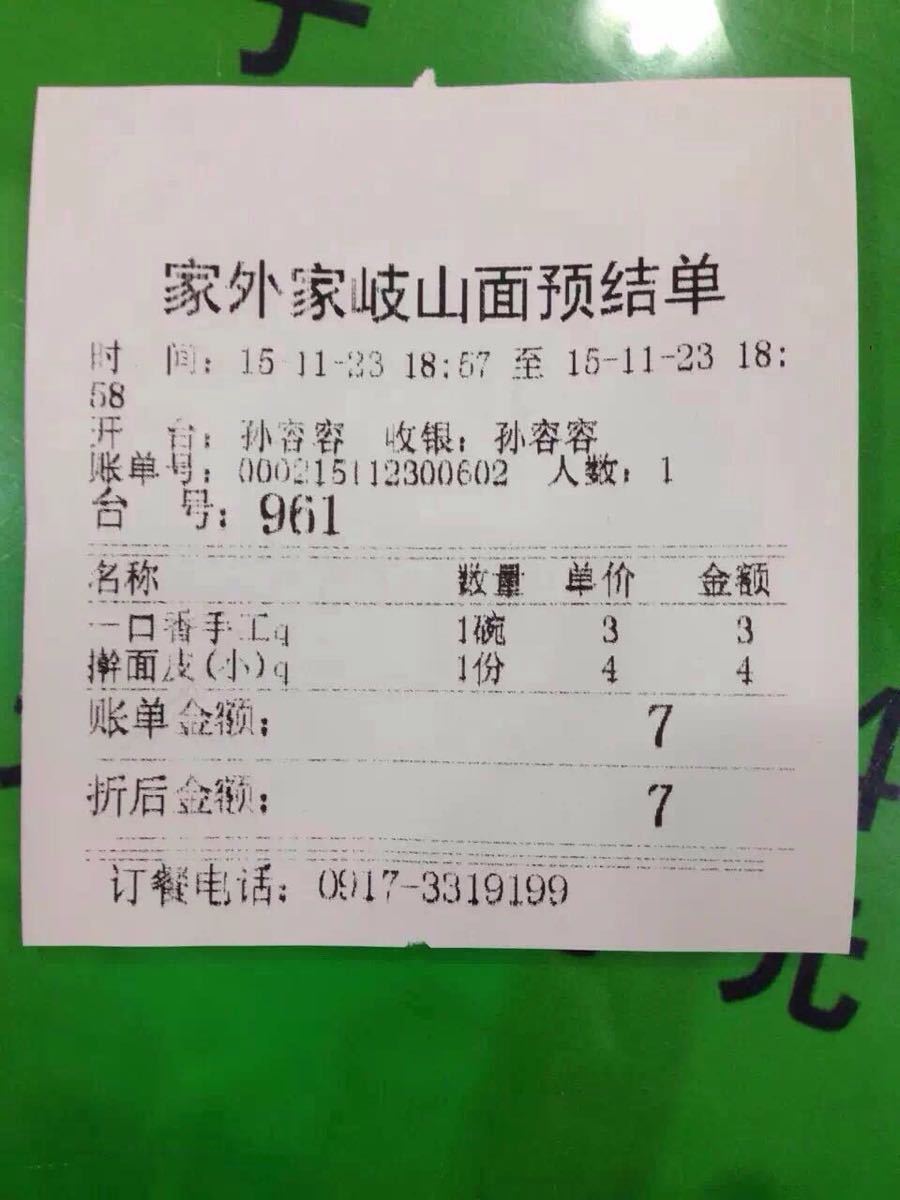 家外家岐山面预结单
时 间：15-11-23 18:57 至 15-11-23 18:
58
开 台：孙容容 收银：孙容容
账单号：000215112300602 人数：1
台 号：961
名称 数量 单价 金额
一口香手工q 1碗 3 3
擀面皮(小)q 1份 4 4
账单金额： 7
折后金额： 7
订餐电话：0917-3319199